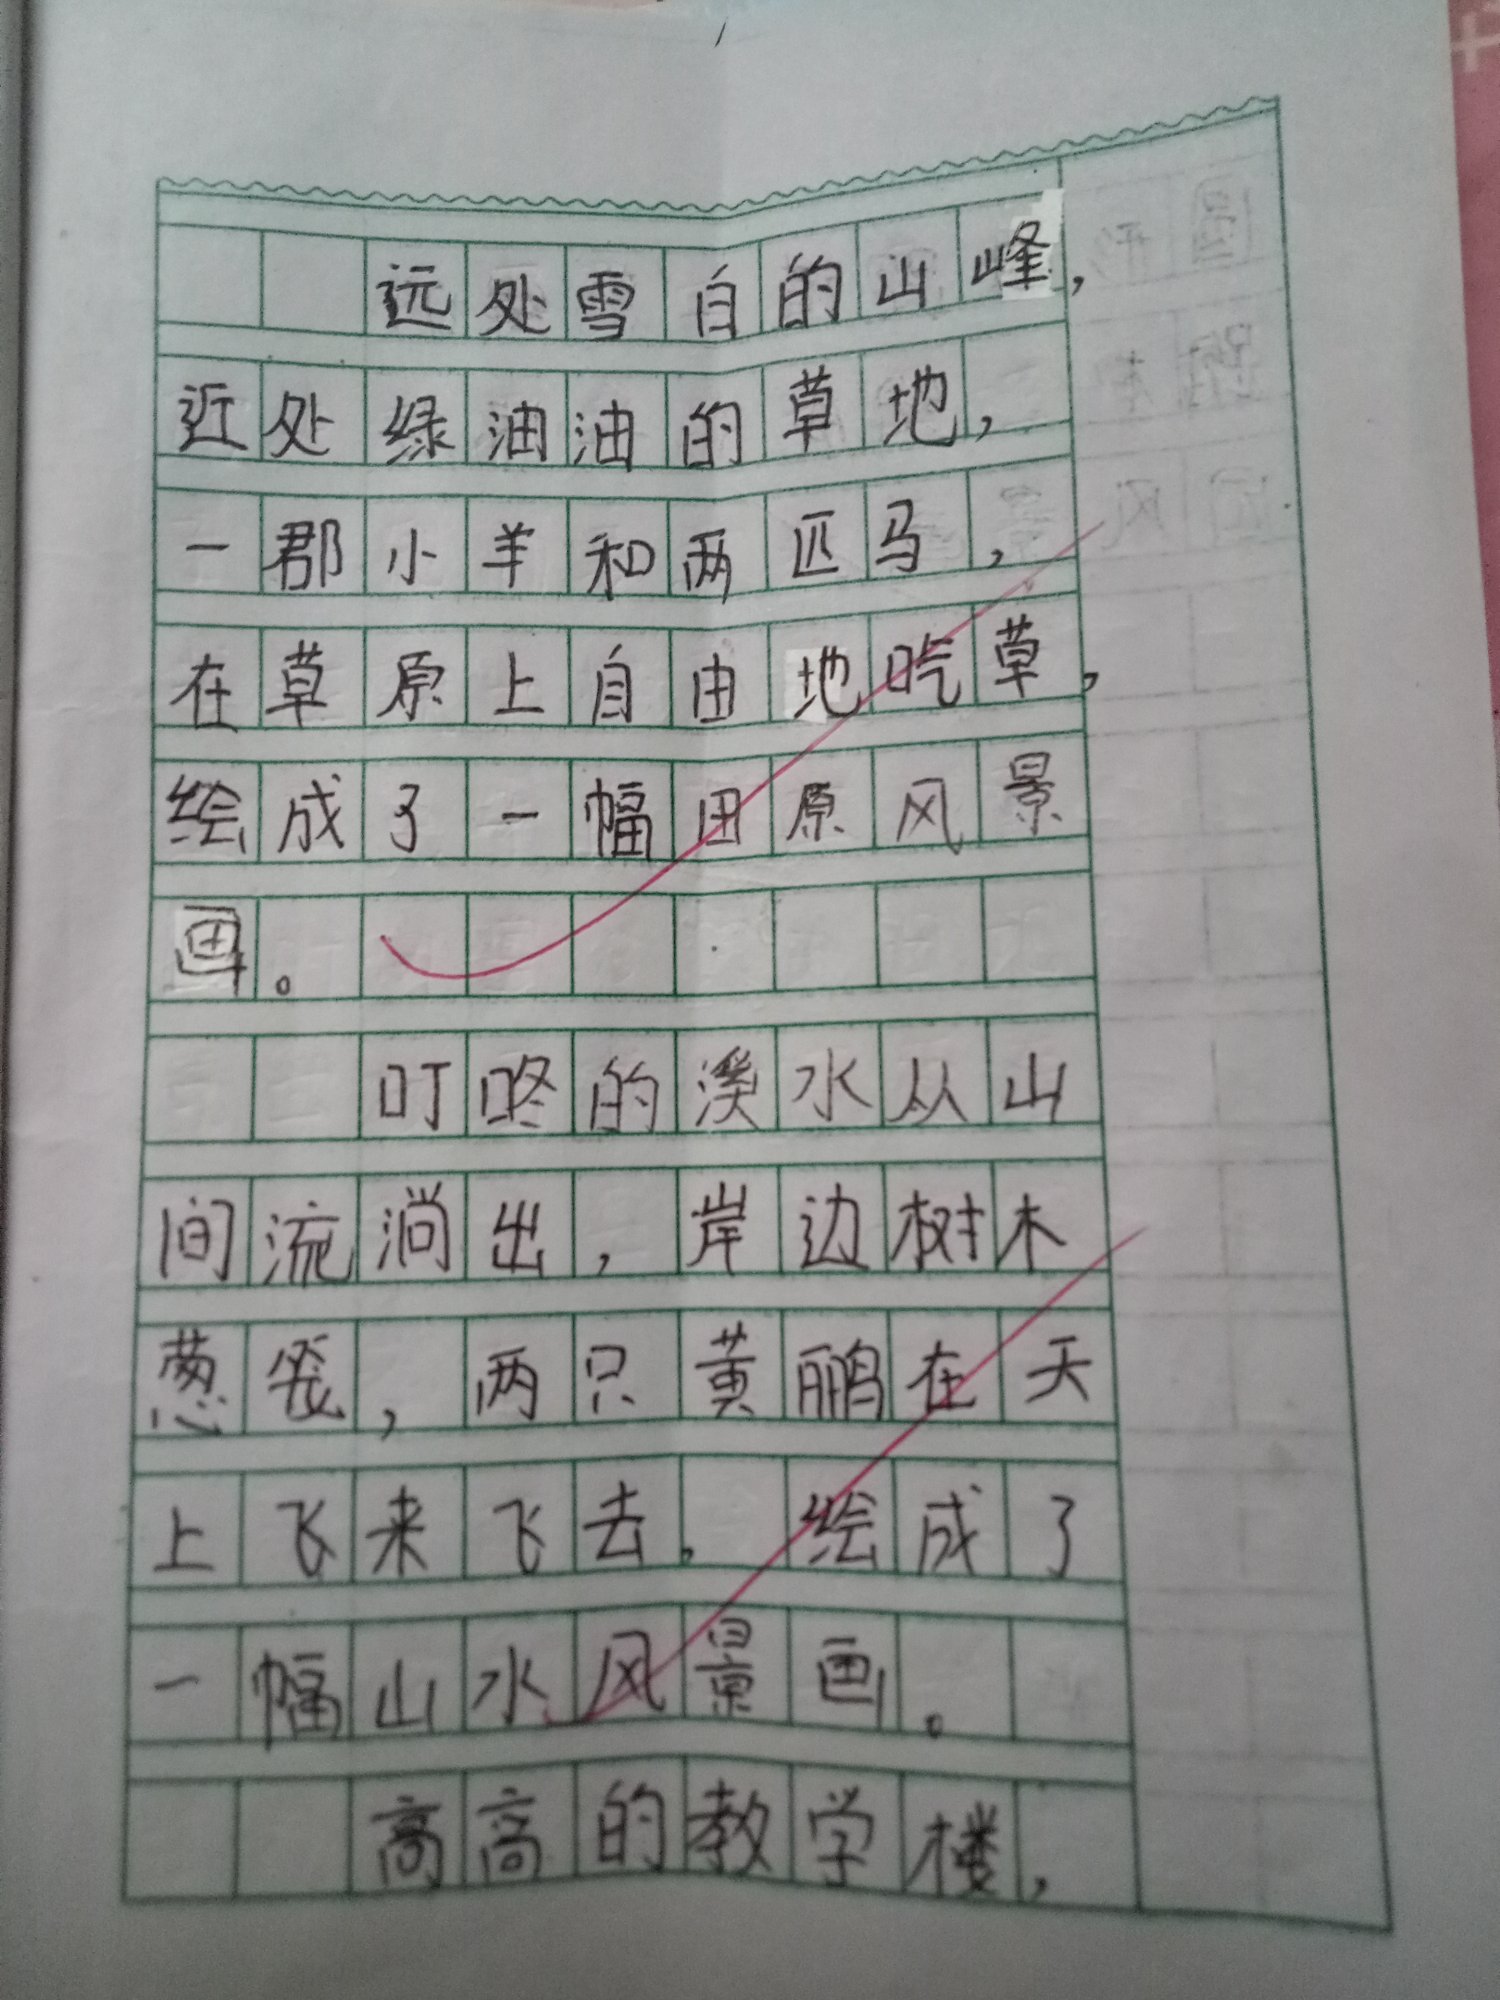 远处雪白的山峰，
近处绿油油的草地，
一郡小羊和两匹马，
在草原上自由地吃草，
绘成了一幅田原风景
画。
叮咚的溪水从山
间流淌出，岸边树木
葱茏，两只黄鹂在天
上飞来飞去，绘成了
一幅山水风景画。
高高的教学楼，